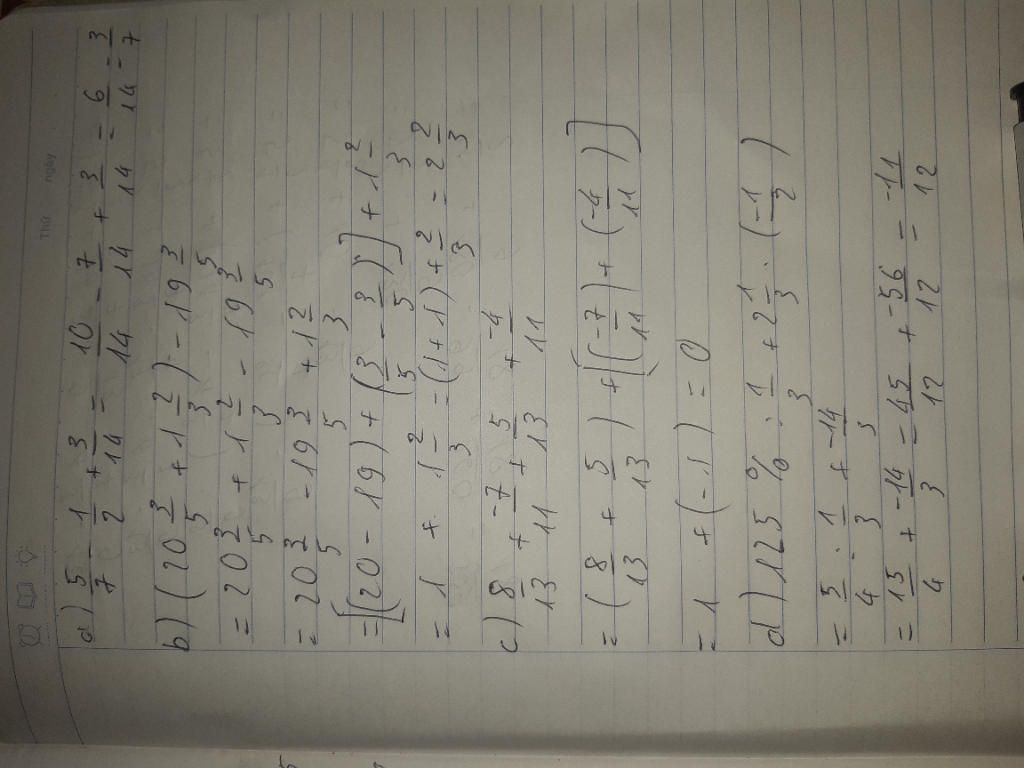 Thứ ngày
a) 5/7 - 1/2 + 3/14 = 10/14 - 7/14 + 3/14 = 6/14 = 3/7
b) (20 3/5 + 1 2/3) - 19 3/5
= 20 3/5 + 1 2/3 - 19 3/5
= 20 3/5 - 19 3/5 + 1 2/3
= [(20 - 19) + (3/5 - 3/5)] + 1 2/3
= 1 + 1 2/3 = (1+1) + 2/3 = 2 2/3
c) 8/13 + -7/11 + 5/13 + -4/11
= (8/13 + 5/13) + [(-7/11) + (-4/11)]
= 1 + (-1) = 0
d) 125 % : 1/3 + 2 1/3 : (-1/2)
= 5/4 : 1/3 + -14/3
= 15/4 + -14/3 = 45/12 + -56/12 = -11/12